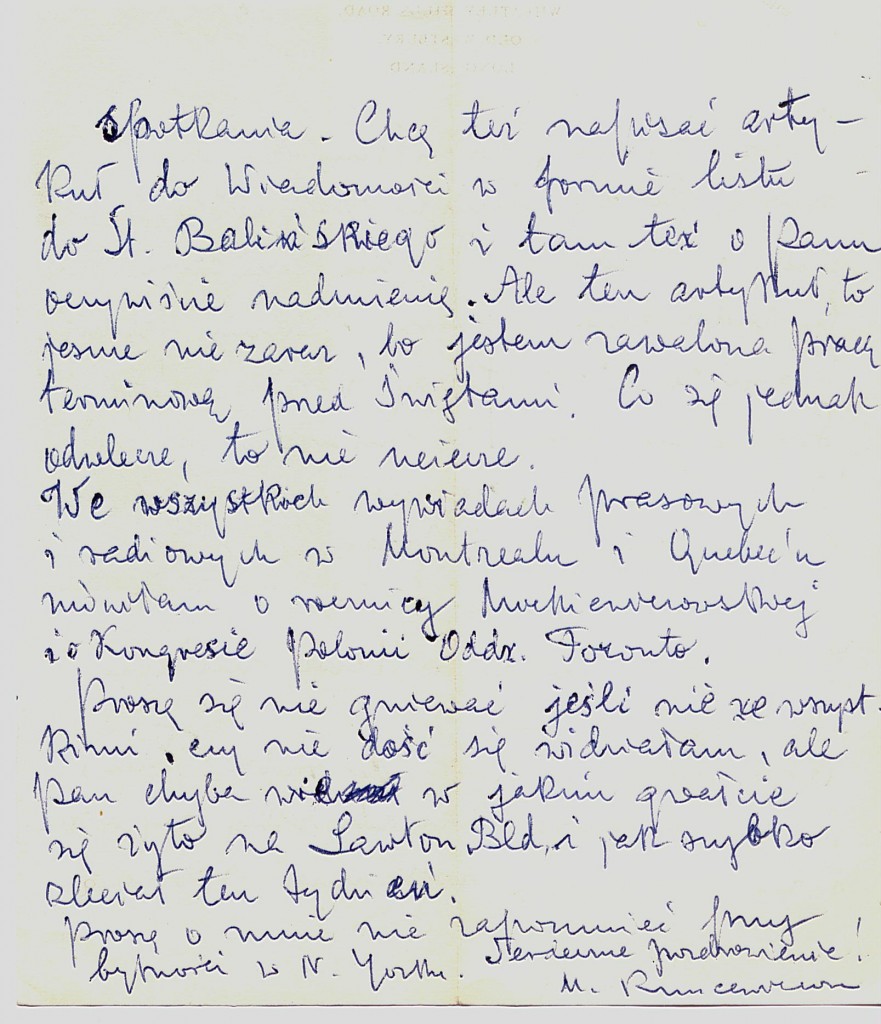 spotkania. Chcę też napisać arty-
kuł do Wiadomości w formie listu
do St. Balińskiego i tam też o panu
oczywiście nadmienię. Ale ten artykuł, to
jeszcze nie zaraz, bo jestem zawalona pracą
terminową przed Świętami. Co się jednak
odwlecze, to nie uciecze.
We wszystkich wywiadach prasowych
i radiowych w Montrealu i Quebec'u
mówiłam o rocznicy Mickiewiczowskiej
i o Kongresie Polonii Oddz. Toronto.
Proszę się nie gniewać jeśli nie ze wszyst-
kimi, czy nie dość się widziałam, ale
pan chyba w jakim gwałcie
się żyło na Lawton Bld, i jak szybko
zleciał ten tydzień.
Proszę o mnie nie zapomnieć przy
bytności w N. Yorku. Serdeczne pozdrowienie!
M.